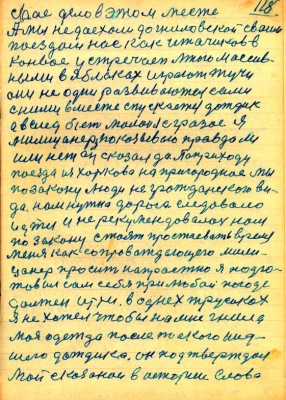 118
свае дело в этом месте
А мы не даехали до гниловской своим
поездом нас как и начиков в
Конвое устречает много массив-
ными в яблаках играют тучи
они не одни развиваются сами
с ними вместе спускается дождик
а вслед бьет молния с гразое я
милицанеру показываю правда ли
или нет он сказал да Я по приходу
поезда из Харкова на пригородное мы
по закону люди не гражданского ви-
да. нам нужна дорога следовало
идти и не рекумендовалас нам
по закону стаят простаевать время
меня как сопроваждающего мили-
цанер просить напрастно я подго-
товил сам себя при любой погоде
должен итти. в однех трусиках
я не хочеш чтобы на мне гнила
моя одежда после такого ли-
шего дождика. он подтвердил
мой сказаной в истории Слова